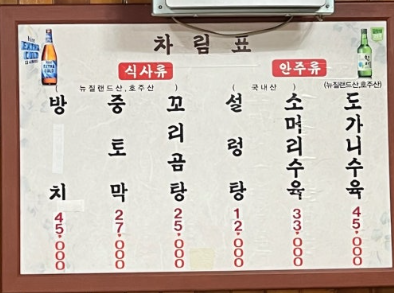 차림표
식사류
안주류
(뉴질랜드산,호주산)
(국내산)
(뉴질랜드산,호주산)
방치
45,000
중토막
27,000
꼬리곰탕
25,000
설렁탕
12,000
소머리수육
33,000
도가니수육
45,000